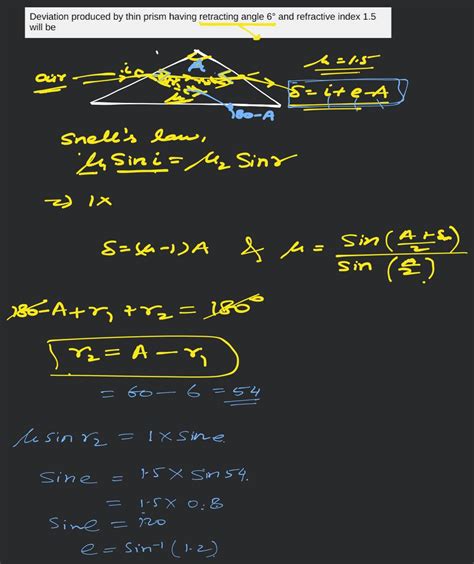 Deviation produced by thin prism having retracting angle 6° and refractive index 1.5
will be
μ = 1.5
air
i
A
e
μ
δ = i + e - A
180-A
Snell's law,
μ₁ Sin i = μ₂ Sin r
=> 1x
δ = (μ-1) A & μ = Sin (A + δm / 2) / Sin (A/2)
180 - A + r₁ + r₂ = 180°
r₂ = A - r₁
= 60 - 6 = 54
μ sin r₂ = 1 x sin e
Sin e = 1.5 x Sin 54.
= 1.5 x 0.8
Sin e = 120
e = Sin⁻¹ (1.2)